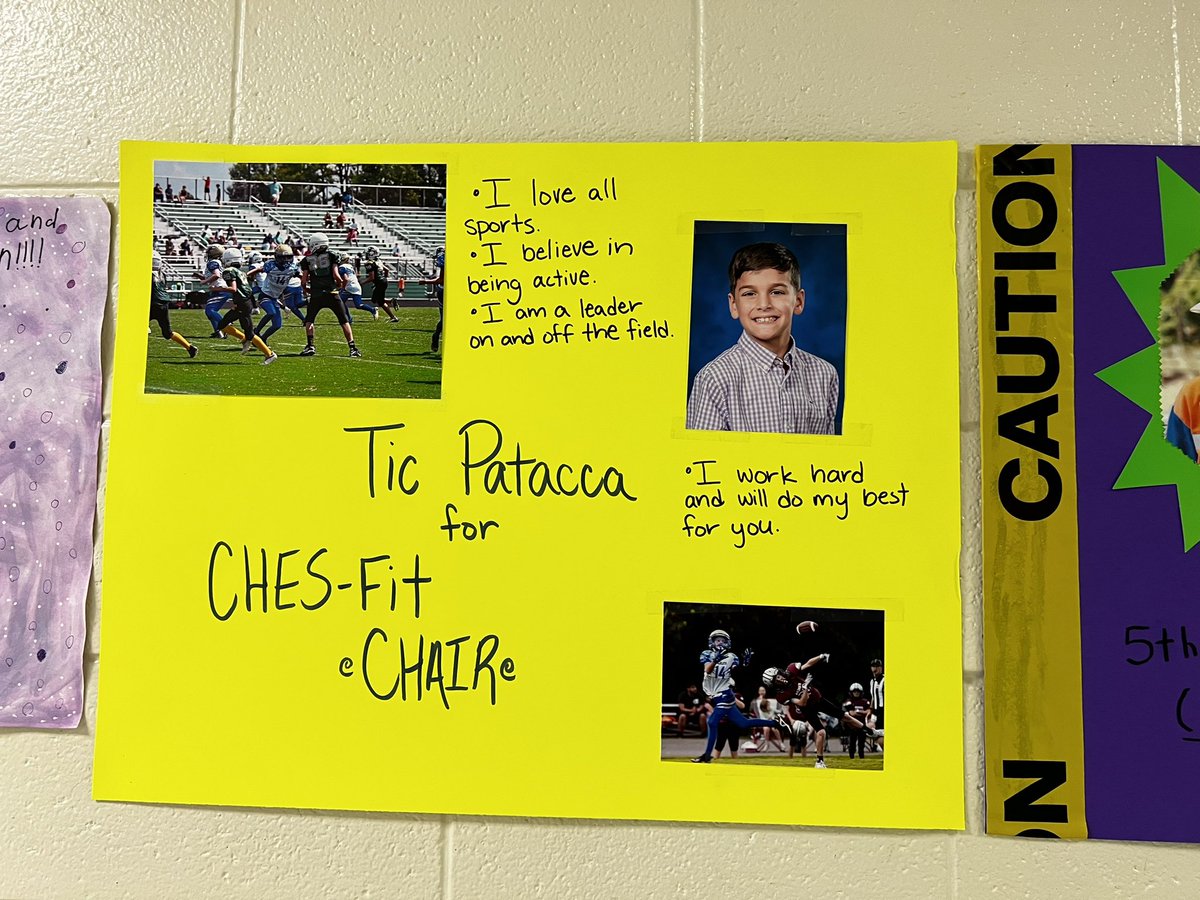 and
n!!!!
• I love all
sports.
• I believe in
being active.
• I am a leader
on and off the field.
Tic Patacca
for
CHES-Fit
CHAIR
• I work hard
and will do my best
for you.
14
14
CAUTION
ON
5th